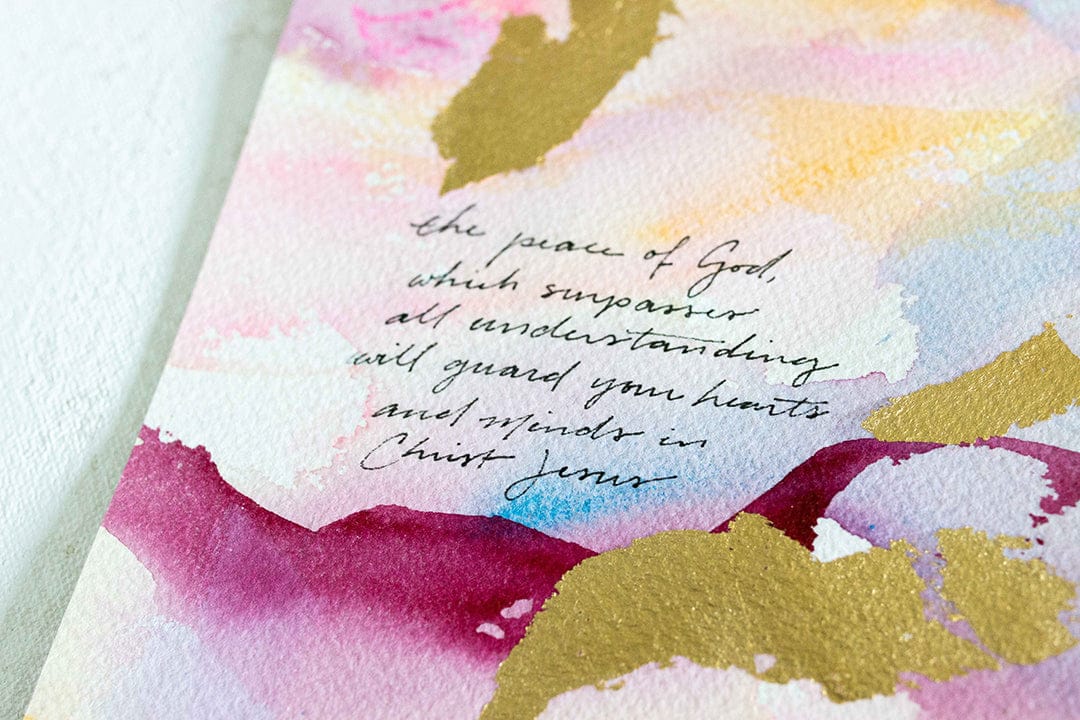 the peace of God,
which surpasses
all understanding
will guard your hearts
and minds in
Christ Jesus